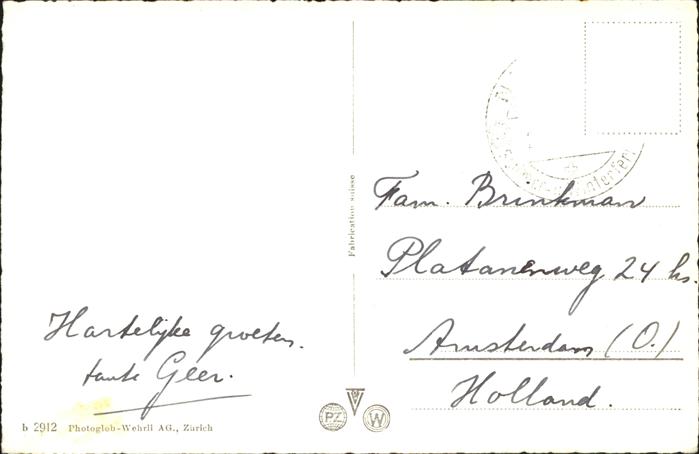 Hartelijke groeten.
tante Geer.
b 2912 Photoglob-Wehrli AG., Zürich
Fabrication suisse
PZ
W
Fam. Brinkman
Platanenweg 24 hs.
Amsterdam (O.)
Holland.